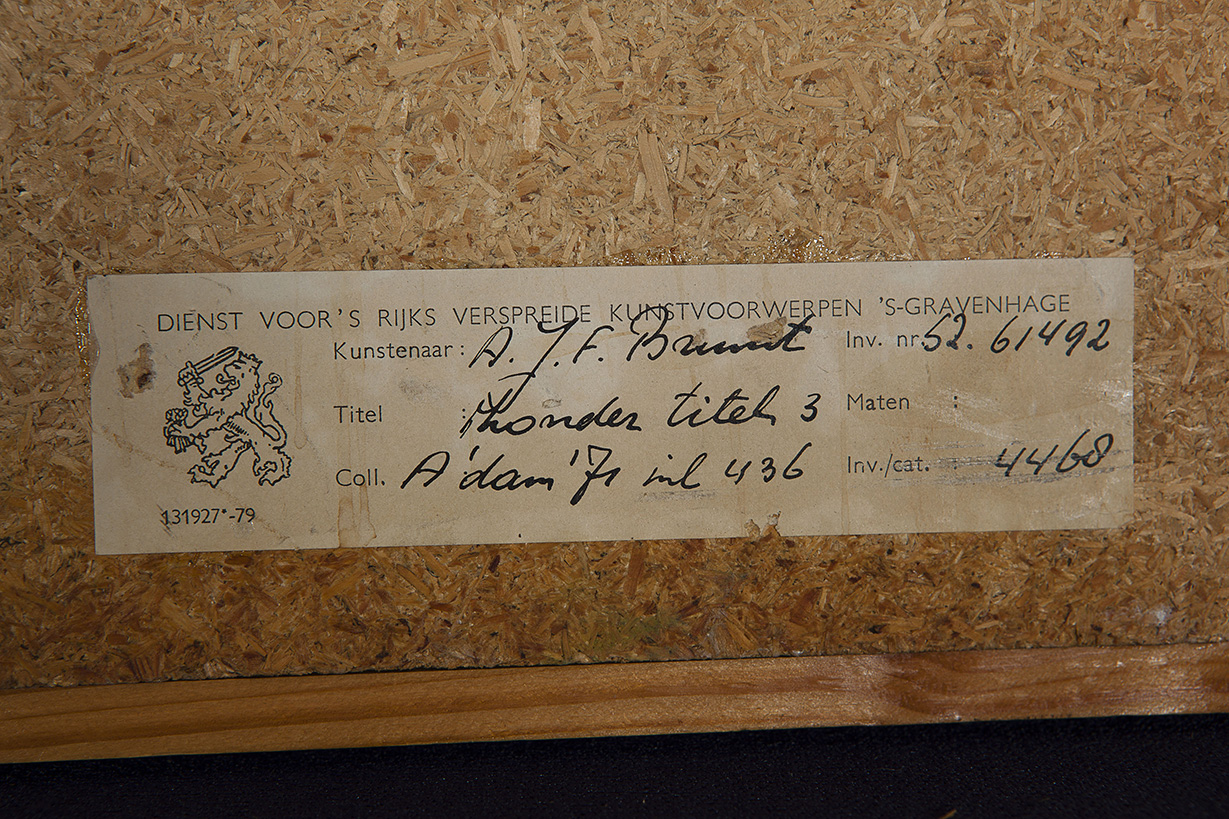 DIENST VOOR'S RIJKS VERSPREIDE KUNSTVOORWERPEN 'S-GRAVENHAGE
Kunstenaar: A. J. F. Inv. nr. 52. 61492
Titel : zonder titel 3 Maten :
Coll. A'dam '71 inl 436 Inv./cat. : 4468
131927*-79